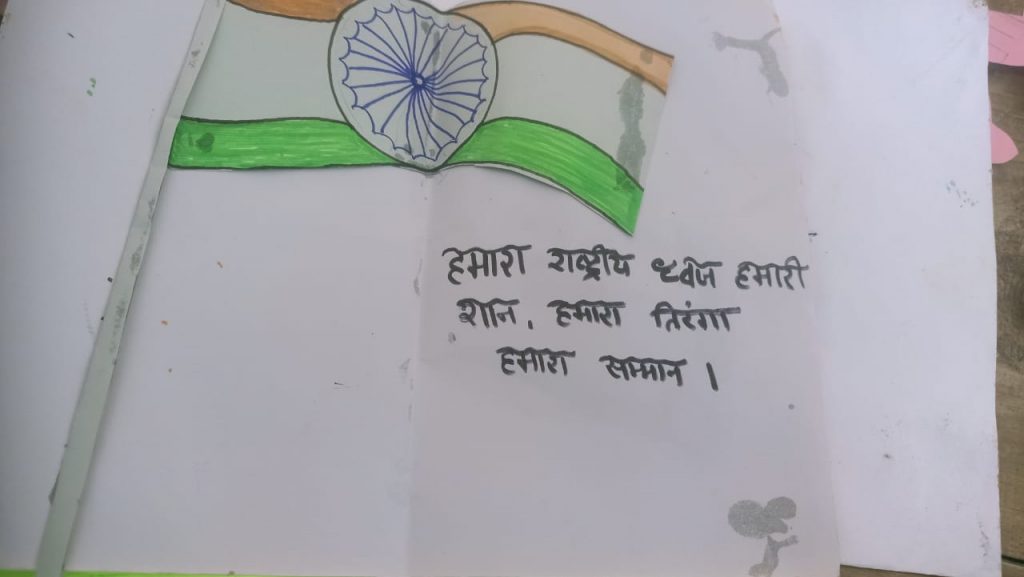 हमारा राष्ट्रीय ध्वज हमारी
शान, हमारा तिरंगा
हमारा सम्मान ।